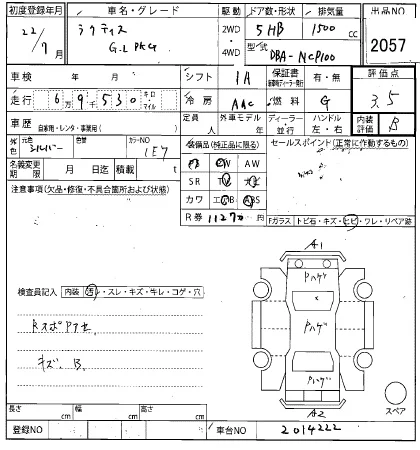 初度登録年月 車名・グレード 駆動 ドア数・形状 排気量 出品NO
22/7月 ラクティス G.L PKG 2WD・4WD 5HB 1500cc 2057
型式 DBA-NCP100
車検 年 月 シフト IA 保証書 有・無 評価点
走行 6万9千530 キロ マイル 冷房 AAC 燃料 G 3.5
車歴 自家用・レンタ・事業用( ) 定員 人 外車モデル 年 ディーラー・並行 ハンドル 左・右 内装評価 B
外色 元色 シルバー 色替 カラーNO 1E7
装備品(純正品に限る) セールスポイント(正常に作動するもの)
名義変更期限 月 日迄 積載 t
PS PW AW
SR TV ナビ
カワ エアB ABS
R券 11270円
注意事項(欠品・修復・不具合箇所および状態)
Fガラス トビ石・キズ・ヒビ・ワレ・リペア跡
A1
Pハゲ
Pハゲ
Pハゲ
A2
スペア
検査員記入 内装 汚レ・スレ・キズ・キレ・コゲ・穴
キズ、B.
長さ cm 幅 cm 高さ cm
登録NO 車台NO 2014222